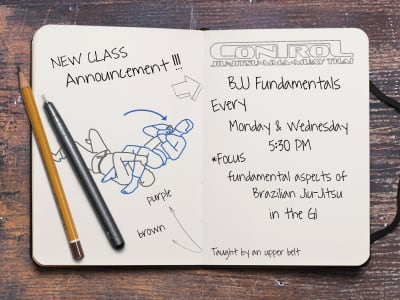 NEW CLASS
Announcement !!!
purple
brown
CONTROL
JIU-JITSU-MMA-MUAY THAI
BJJ Fundamentals
Every
Monday & Wednesday
5:30 PM
*Focus
fundamental aspects of
Brazilian Jiu-Jitsu
in the GI
Taught by an upper belt